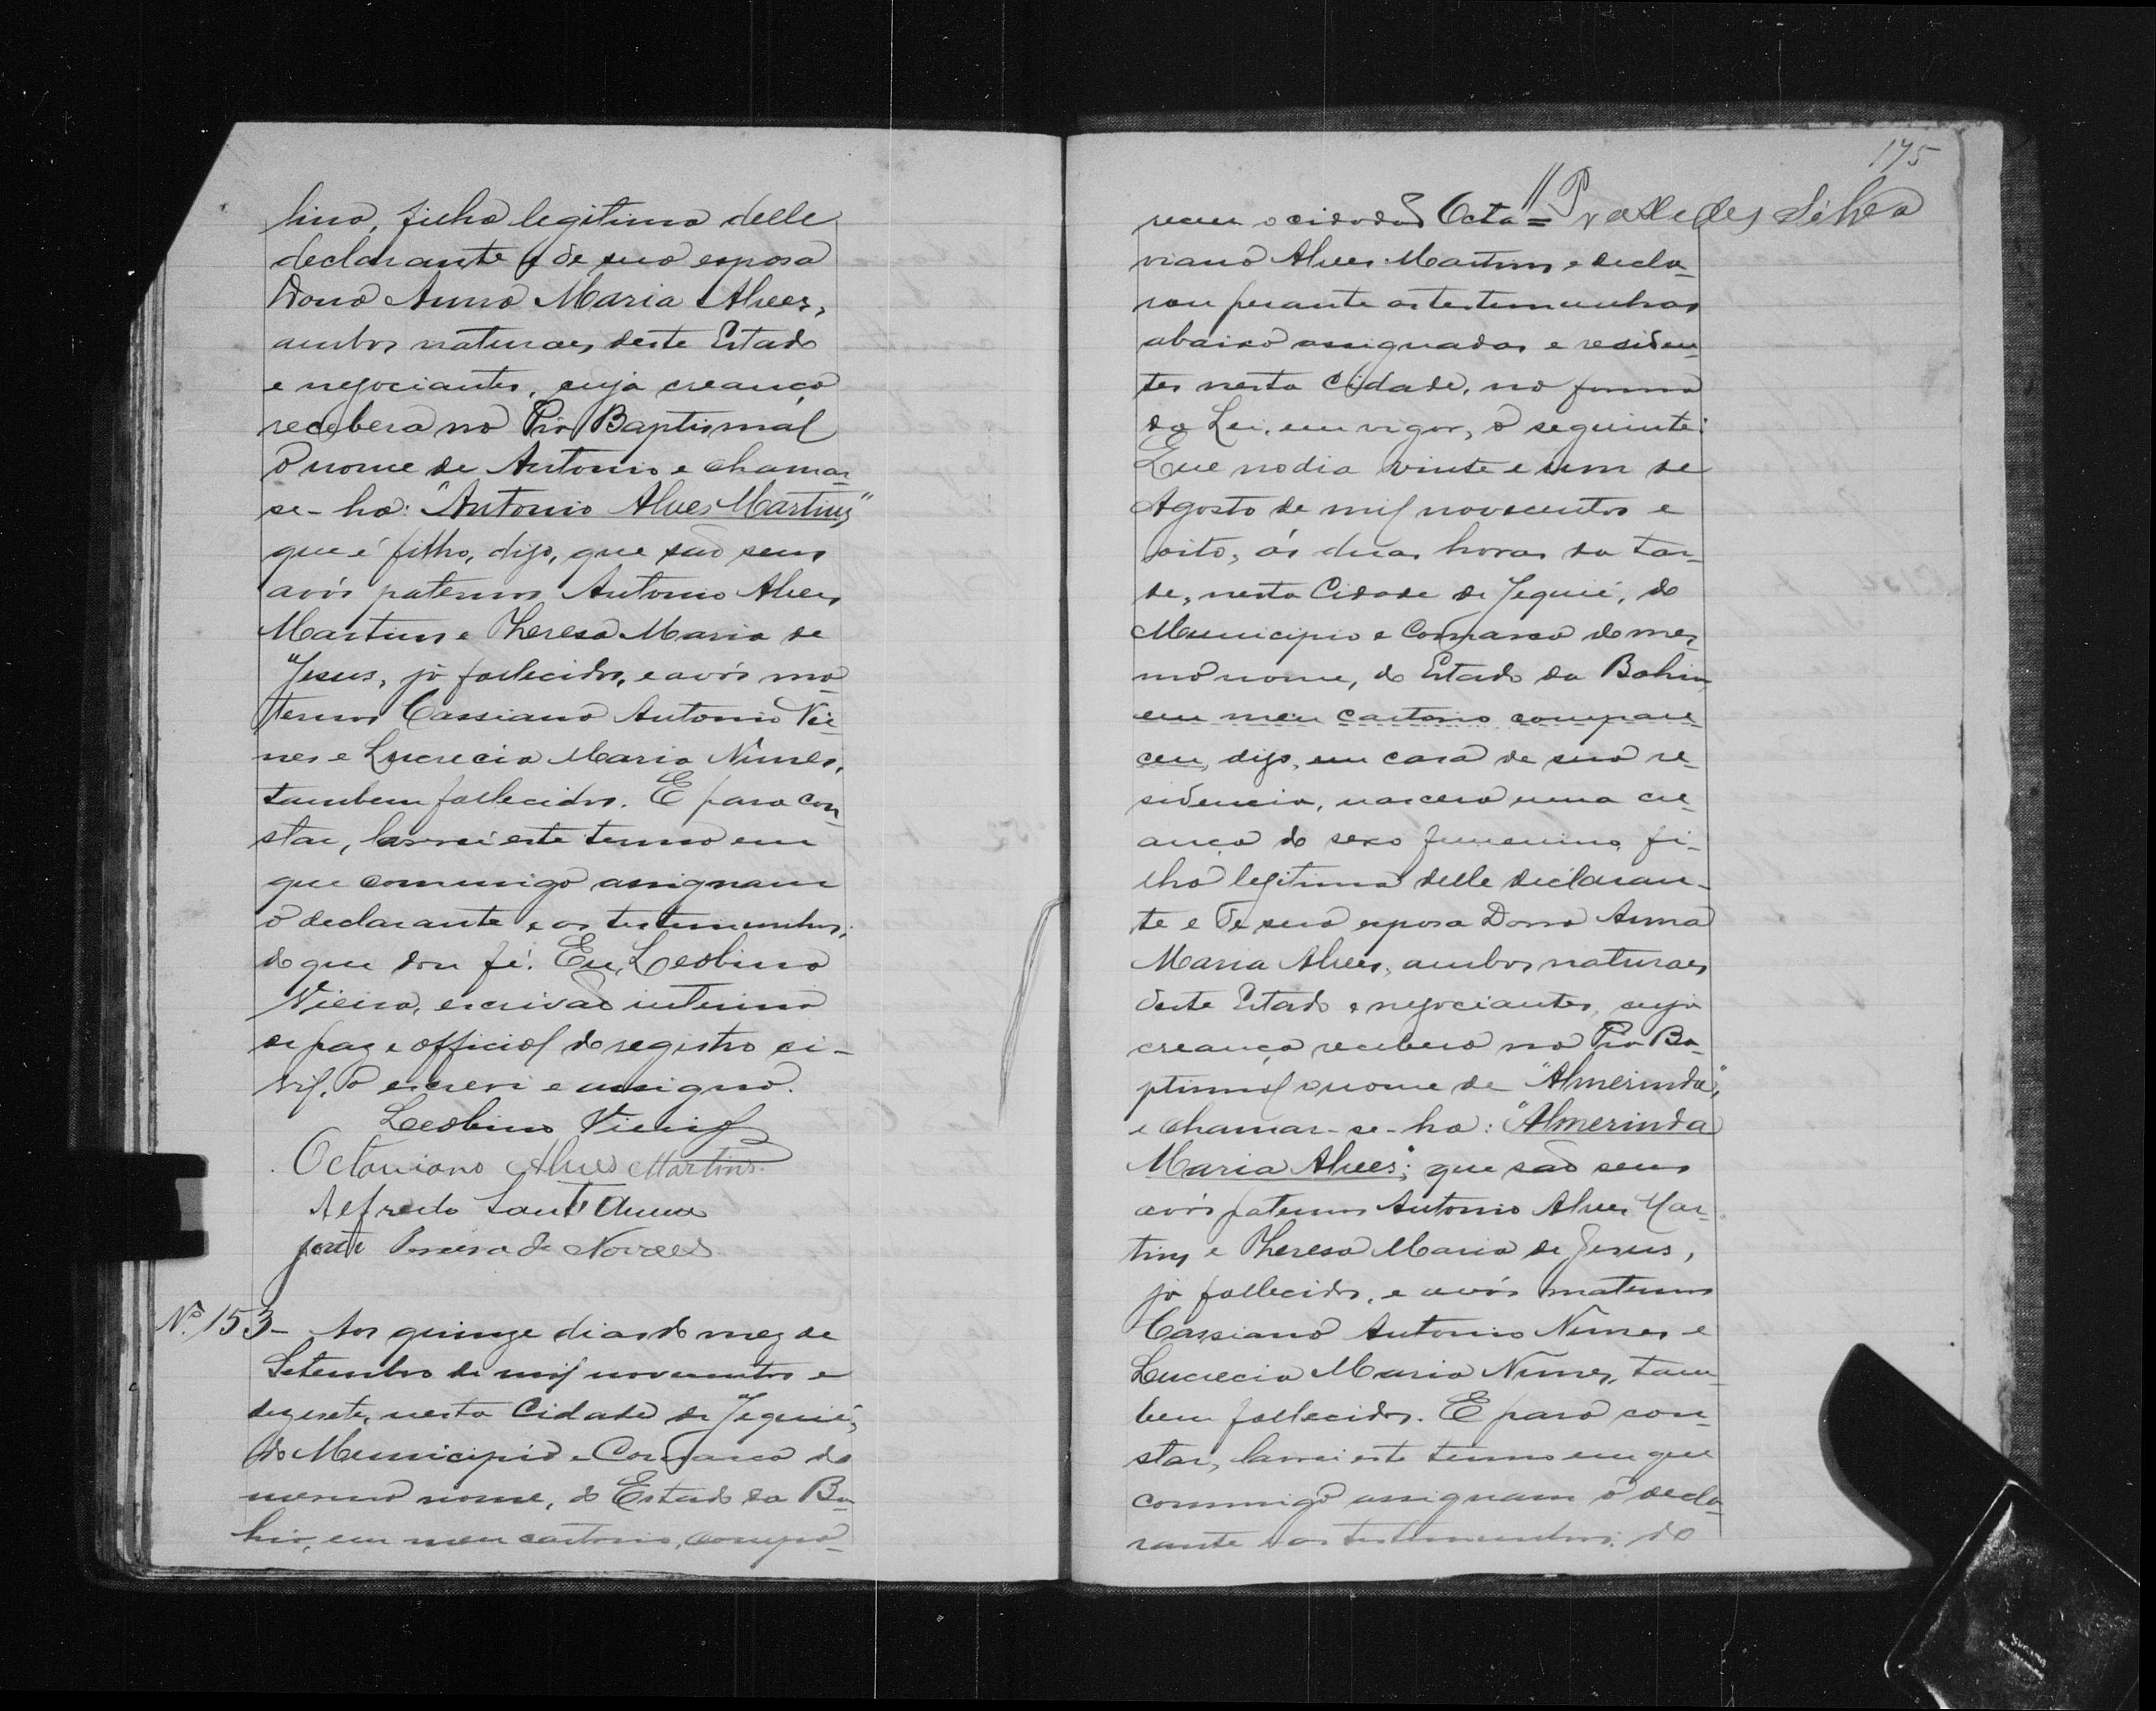 lino, filho legitimo delle
declarante e de sua esposa
Dona Anna Maria Alves,
ambos naturaes deste Estado
e negociantes, cuja creança
receberá na Pia Baptismal
o nome de Antonio e chamar-
se-ha: "Antonio Alves Martins",
que é filho, digo, que são seus
avós paternos Antonio Alves
Martins e Theresa Maria de
Jesus, já fallecidos, e avós ma-
ternos Cassiano Antonio Nu-
nes e Lucrecia Maria Nunes,
tambem fallecidos. E para con-
star, lavrei este termo em
que commigo assignam
o declarante e as testemunhas;
do que dou fé. Eu, Leobino
Vieira, escrivão interino
de paz e official do registro ci-
vil, o escrevi e assigno.
Leobino Vieira
Octaviano Alves Martins.
Alfredo Sant'Anna
José de Novaes
Nº 153 - Aos quinze dias do mez de
Setembro de mil novecentos e
dezesete, nesta Cidade de Jequié,
do Municipio e Comarca do
mesmo nome, do Estado da Ba-
hia, em meu cartorio, compa-
175
receu o cidadão Octa=
viano Alves Martins e decla-
rou perante as testemunhas
abaixo assignadas e residen-
tes nesta Cidade, na forma
da Lei, em vigor, o seguinte:
Que no dia vinte e um de
Agosto de mil novecentos e
oito, ás duas horas da tar-
de, nesta Cidade de Jequié, do
Municipio e Comarca do mes-
mo nome, do Estado da Bahia,
em meu cartorio compare-
ceu, digo, em casa de sua re-
sidencia, nascera uma cre-
ança do sexo femenino, fi-
lha legitima delle declaran-
te e de sua esposa Dona Anna
Maria Alves, ambos naturaes
deste Estado e negociantes, cuja
creança receberá na Pia Ba-
ptismal o nome de "Almerinda",
e chamar-se-ha: "Almerinda
Maria Alves"; que são seus
avós paternos Antonio Alves Mar-
tins e Theresa Maria de Jesus,
já fallecidos, e avós maternos
Cassiano Antonio Nunes e
Lucrecia Maria Nunes, tam-
bem fallecidos. E para con-
star, lavrei este termo em que
commigo assignam o decla-
rante e as testemunhas; do